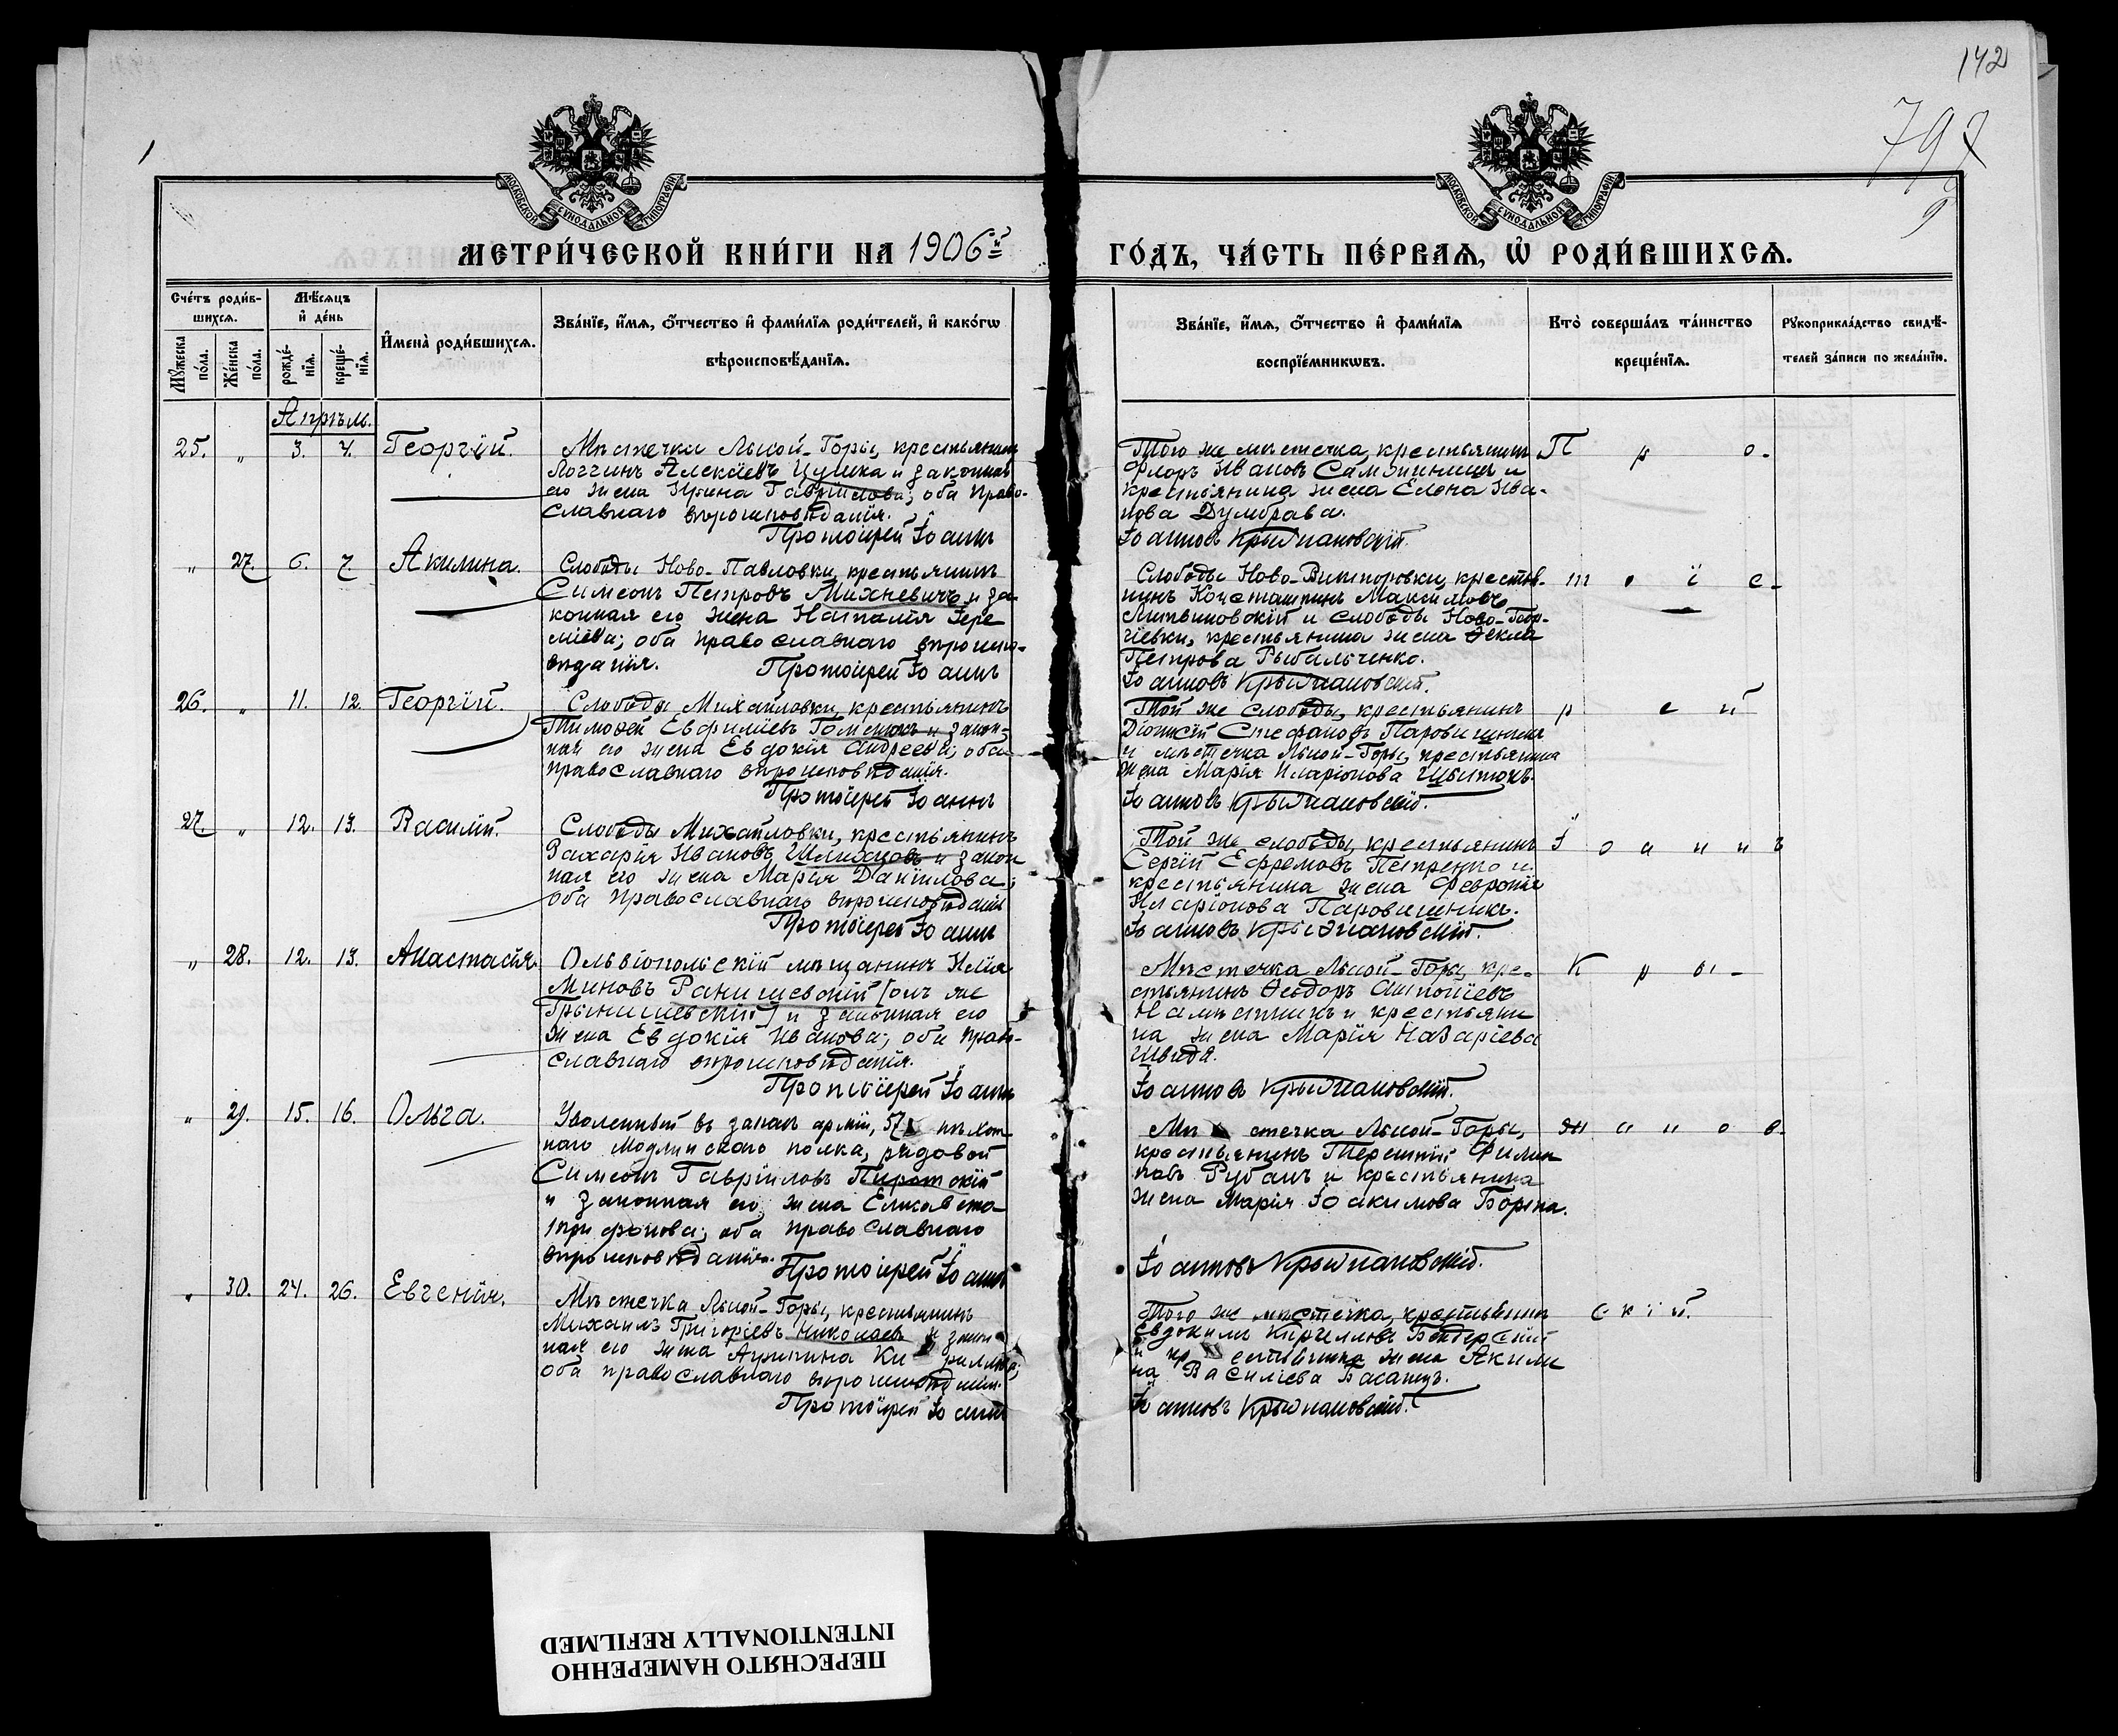 142
797
9
МОСКОВСКОЙ СѴНОДАЛЬНОЙ ТИПОГРАФІИ
МОСКОВСКОЙ СѴНОДАЛЬНОЙ ТИПОГРАФІИ
МЕТРИ́ЧЕСКОЙ КНИ́ГИ НА 1906й ГО́ДЪ, ЧА́СТЬ ПЕ́РВАѦ, Ѽ РОДИ́ВШИХСѦ.
Сче́тъ роди́в-
шихсѧ.
Мѣ́сѧцъ
и҆ де́нь
И҆мена̀ роди́вшихсѧ.
Зва́нїе, и҆́мѧ, ѻ҆́тчество и҆ фами́лїѧ роди́телей, и҆ како́гѡ
вѣроисповѣ́данїѧ.
Зва́нїе, и҆́мѧ, ѻ҆́тчество и҆ фами́лїѧ
воспрїе́мникѡвъ.
Кто̀ соверша́лъ та́инство
креще́нїѧ.
Рꙋкоприкла́дство свидѣ́-
телей за́писи по жела́нїю.
Мꙋ́жеска по́ла.
Же́нска по́ла.
рожде́-нїѧ.
креще́-нїѧ.
Апрѣль.
25. „ 3. 4. Георгій.
Мѣстечка Лысой-Горы, крестьянинъ
Логгинъ Алексіевъ Цушка и законная
его жена Ирина Гавриілова; оба право-
славнаго вѣроисповѣданія.
Протоіерей Іоаннъ
Того же мѣстечка, крестьянинъ
Флоръ Ивановъ и
крестьянина жена Елена Ива-
нова Думбрава.
Іоанновъ Крыжановскій.
П р о-
„ 27. 6. 7 Акилина.
Слободы Ново-Павловки, крестьянинъ
Симеонъ Петровъ Михневичъ и за-
конная его жена Наталія Іере
міева; оба православнаго вѣроиспо-
вѣданія. Протоіерей Іоаннъ
Слободы Ново-Викторовки, крестья-
нинъ Константинъ Максимовъ
Литвиновскій и слободы Ново-Геор-
гіевки, крестьянина жена Ѳекла
Петрова Рыбальченко.
Іоанновъ Крыжановскій.
т о і е-
26. „ 11. 12. Георгій.
Слободы Михайловки, крестьянинъ
Тимоѳей Евфиміевъ и закон-
ная его жена Евдокія Андреева; оба
православнаго вѣроисповѣданія.
Протоіерей Іоаннъ
Той же слободы, крестьянинъ
Діонисій Стефановъ Паровишникъ
и мѣстечка Лысой-Горы, крестьянина
жена Марія Иларіонова
Іоанновъ Крыжановскій.
р е й
27. „ 12. 13. Василій.
Слободы Михайловки, крестьянинъ
Захарія Ивановъ и закон
ная его жена Марія Даніилова;
оба православнаго вѣроисповѣданія
Протоіерей Іоаннъ
Той же слободы, крестьянинъ
Сергій Ефремовъ Петренко и
крестьянина жена Февронія
Иларіонова Паровишникъ.
Іоанновъ Крыжановскій.
І о а н н ъ
„ 28. 12. 13. Анастасія.
Ольвіопольскій мѣщанинъ Илія
Миновъ Ранишевскій [онъ же
Грынишевскій] и законная его
жена Евдокія Иванова; оба право-
славнаго вѣроисповѣданія.
Протоіерей Іоаннъ
Мѣстечка Лысой-Горы, кре-
стьянинъ Ѳеодоръ Антоніевъ
Намѣстникъ и крестьяни
на жена Марія Назаріева
Швидя.
Іоанновъ Крыжановскій.
К р ы-
„ 29. 15. 16. Ольга.
Уволенный въ запас арміи, 57 пѣхот
наго Модлинскаго полка, рядовой
Симеонъ Гавріиловъ Пиротскій
и законная его жена Елисавета
Трифонова; оба православнаго
вѣроисповѣданія. Протоіерей Іоаннъ
Мѣ стечка Лысой-Горы,
крестьянинъ Терентій Филип
повъ Рубанъ и крестьянина
жена Марія Іоакимова Борта.
Іоанновъ Крыжановскій.
ж а н о в-
„ 30. 24. 26. Евгенія.
Мѣстечка Лысой-Горы, крестьянинъ
Михаилъ Григоріевъ Николаевъ и закон
ная его жена Агрипина Ки рилова;
оба православнаго вѣроисповѣданія.
Протоіерей Іоаннъ
Того же мѣстечка, крестьянинъ
Евдокимъ Кирилловъ Бендерскій
и кр естьянина жена Акили
на Василіева
Іоанновъ Крыжановскій.
с к і й.
ПЕРЕСНЯТО НАМЕРЕННО
INTENTIONALLY REFILMED